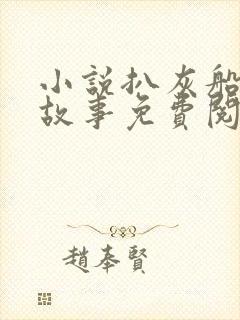 小説扒灰船
故事免費閱
趙奉賢